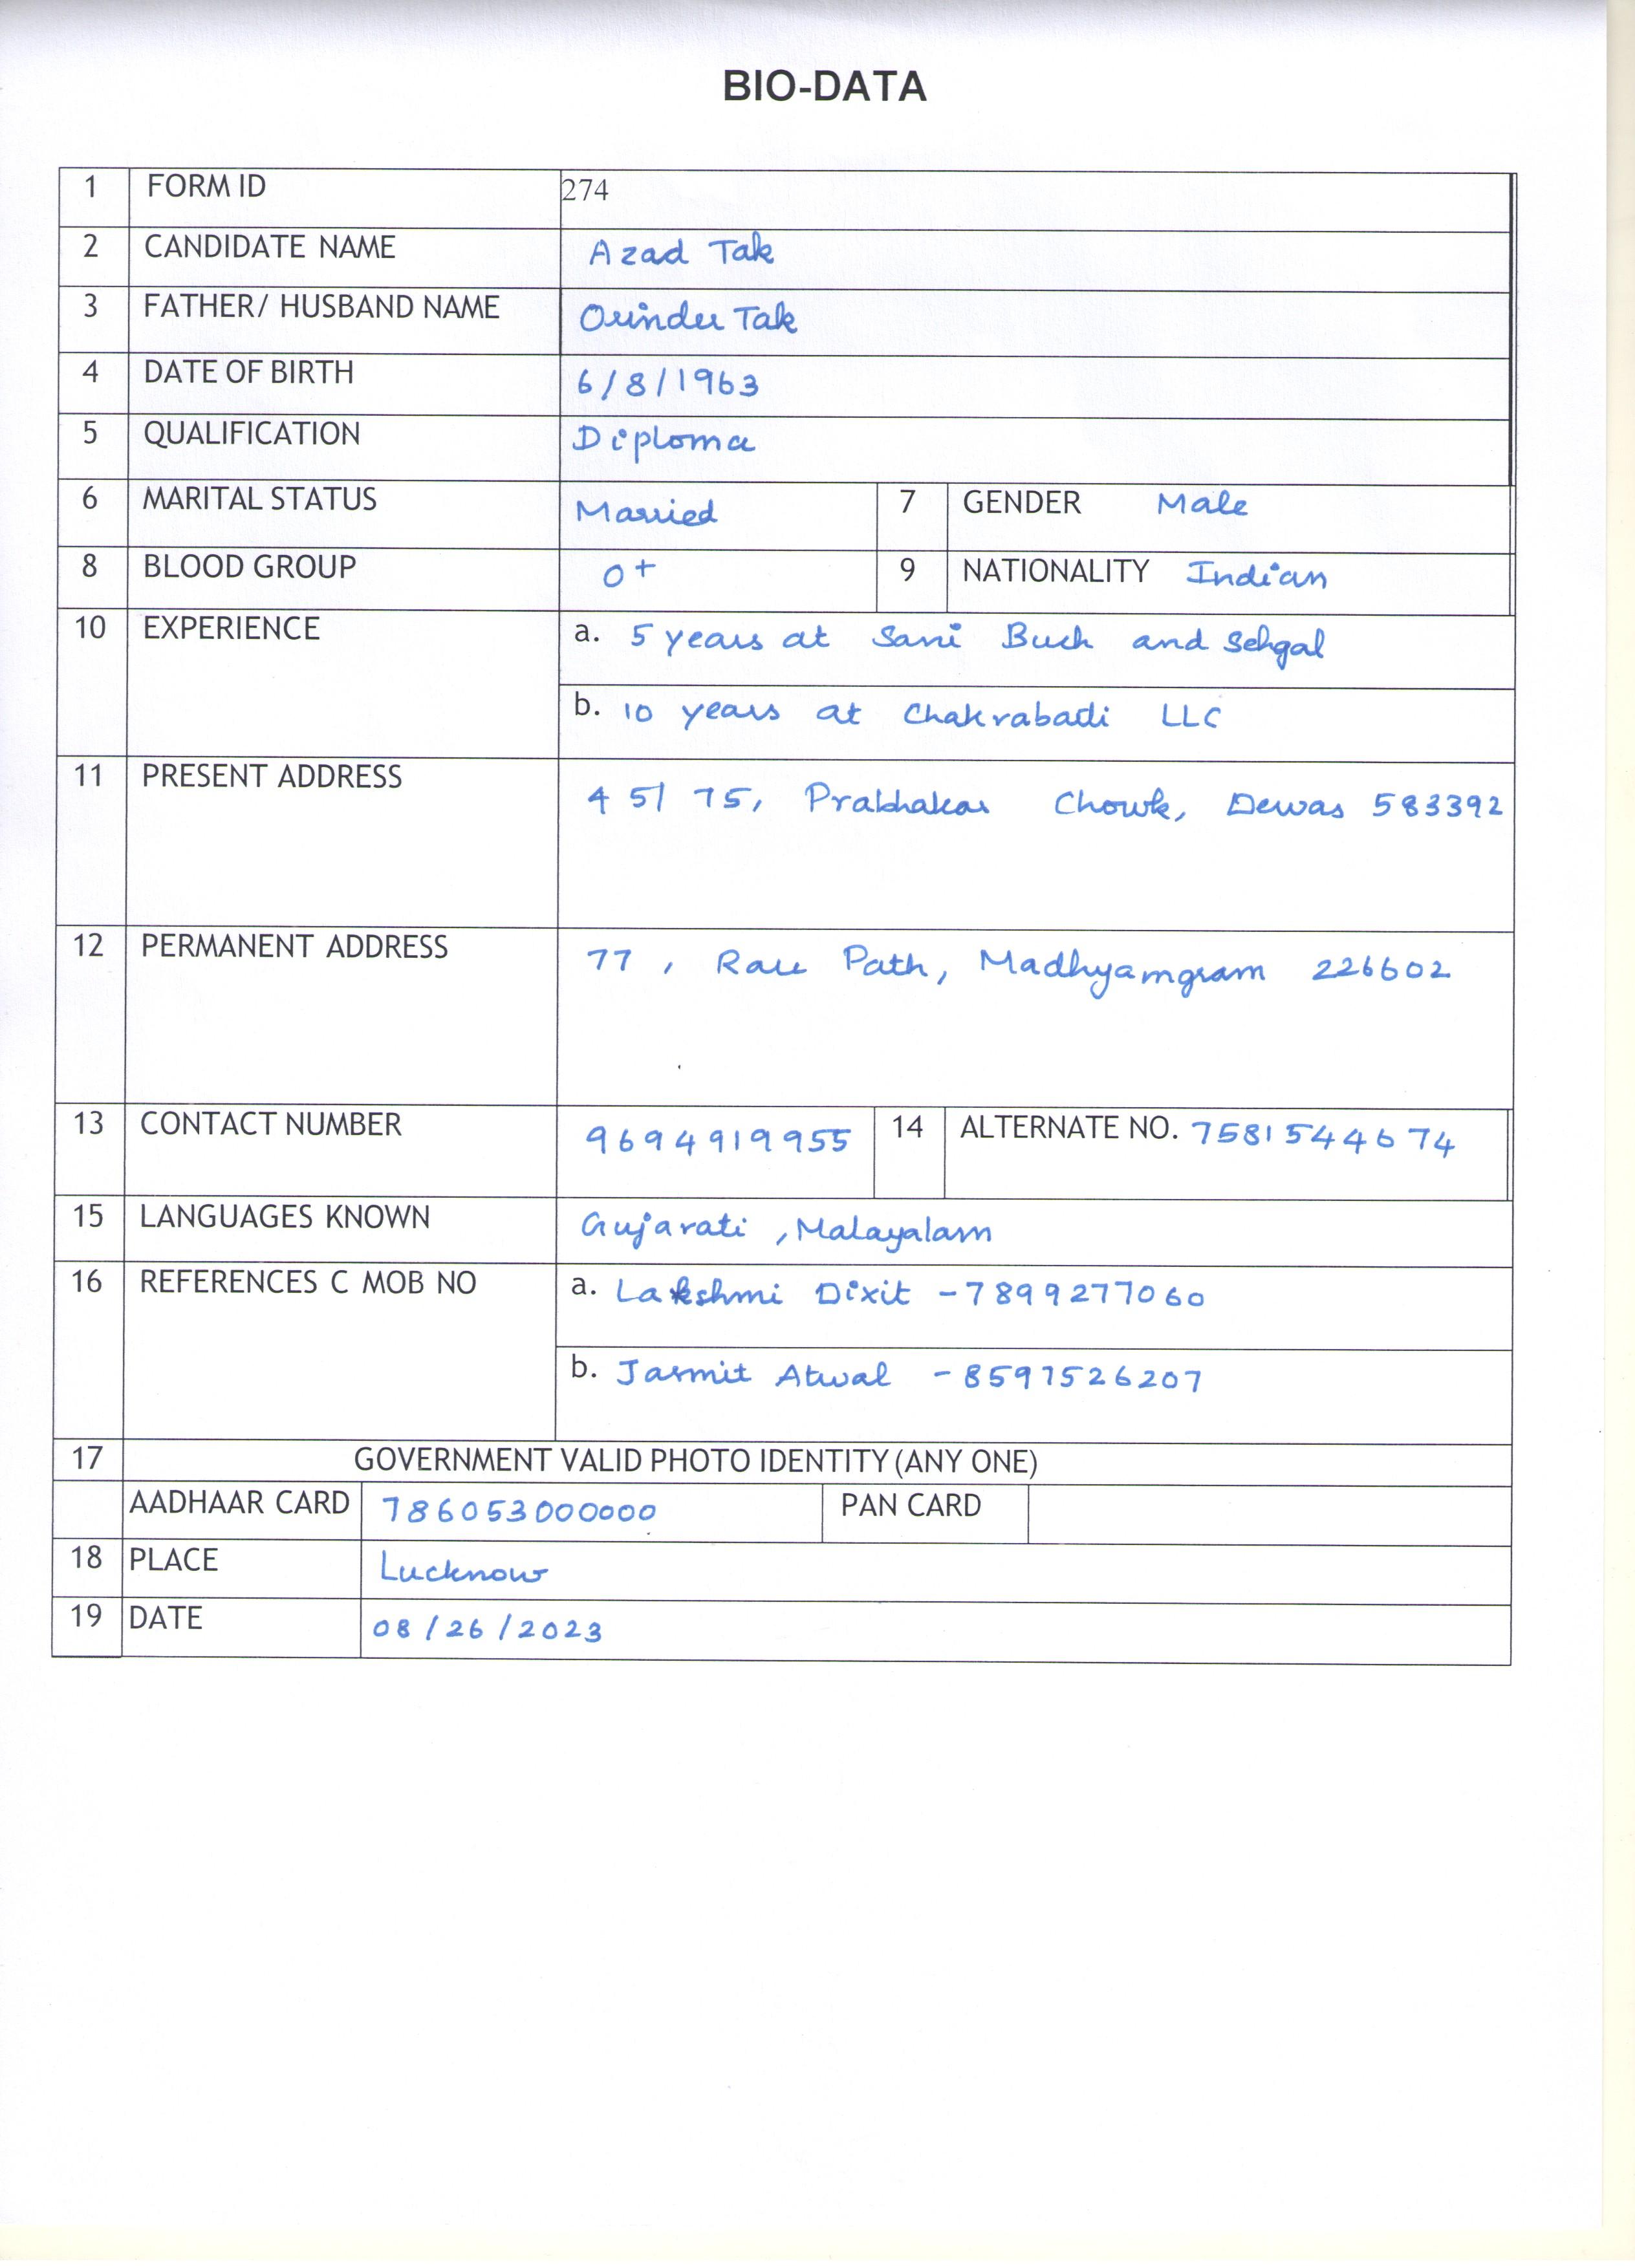 BIO-DATA
1 FORM ID 274
2 CANDIDATE NAME Azad Tak
3 FATHER/ HUSBAND NAME Orinder Tak
4 DATE OF BIRTH 6/8/1963
5 QUALIFICATION Diploma
6 MARITAL STATUS Married 7 GENDER Male
8 BLOOD GROUP O+ 9 NATIONALITY Indian
10 EXPERIENCE a. 5 years at Sani Buch and Sehgal
b. 10 years at Chakrabadi LLC
11 PRESENT ADDRESS 45/75, Prabhakar Chowk, Dewas 583392
12 PERMANENT ADDRESS 77, Path, Madhyamgram 226602
13 CONTACT NUMBER 9694919955 14 ALTERNATE NO. 7581544674
15 LANGUAGES KNOWN Gujarati, Malayalam
16 REFERENCES C MOB NO a. Lakshmi Dixit - 7899277060
b. Jasmit Atwal - 8597526207
17 GOVERNMENT VALID PHOTO IDENTITY (ANY ONE)
AADHAAR CARD 786053000000 PAN CARD
18 PLACE Lucknow
19 DATE 08/26/2023